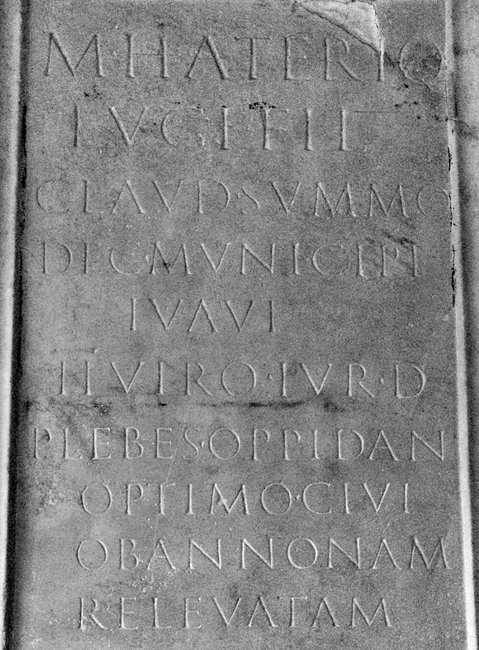 M·HATERIO
LVCI FIL
CLAVD SVMMO
DEC·MVNICIPI
IVAVI
II VIRO·IVR·D
PLEBES·OPPIDAN
OPTIMO·CIVI
OB ANNONAM
RELEVATAM